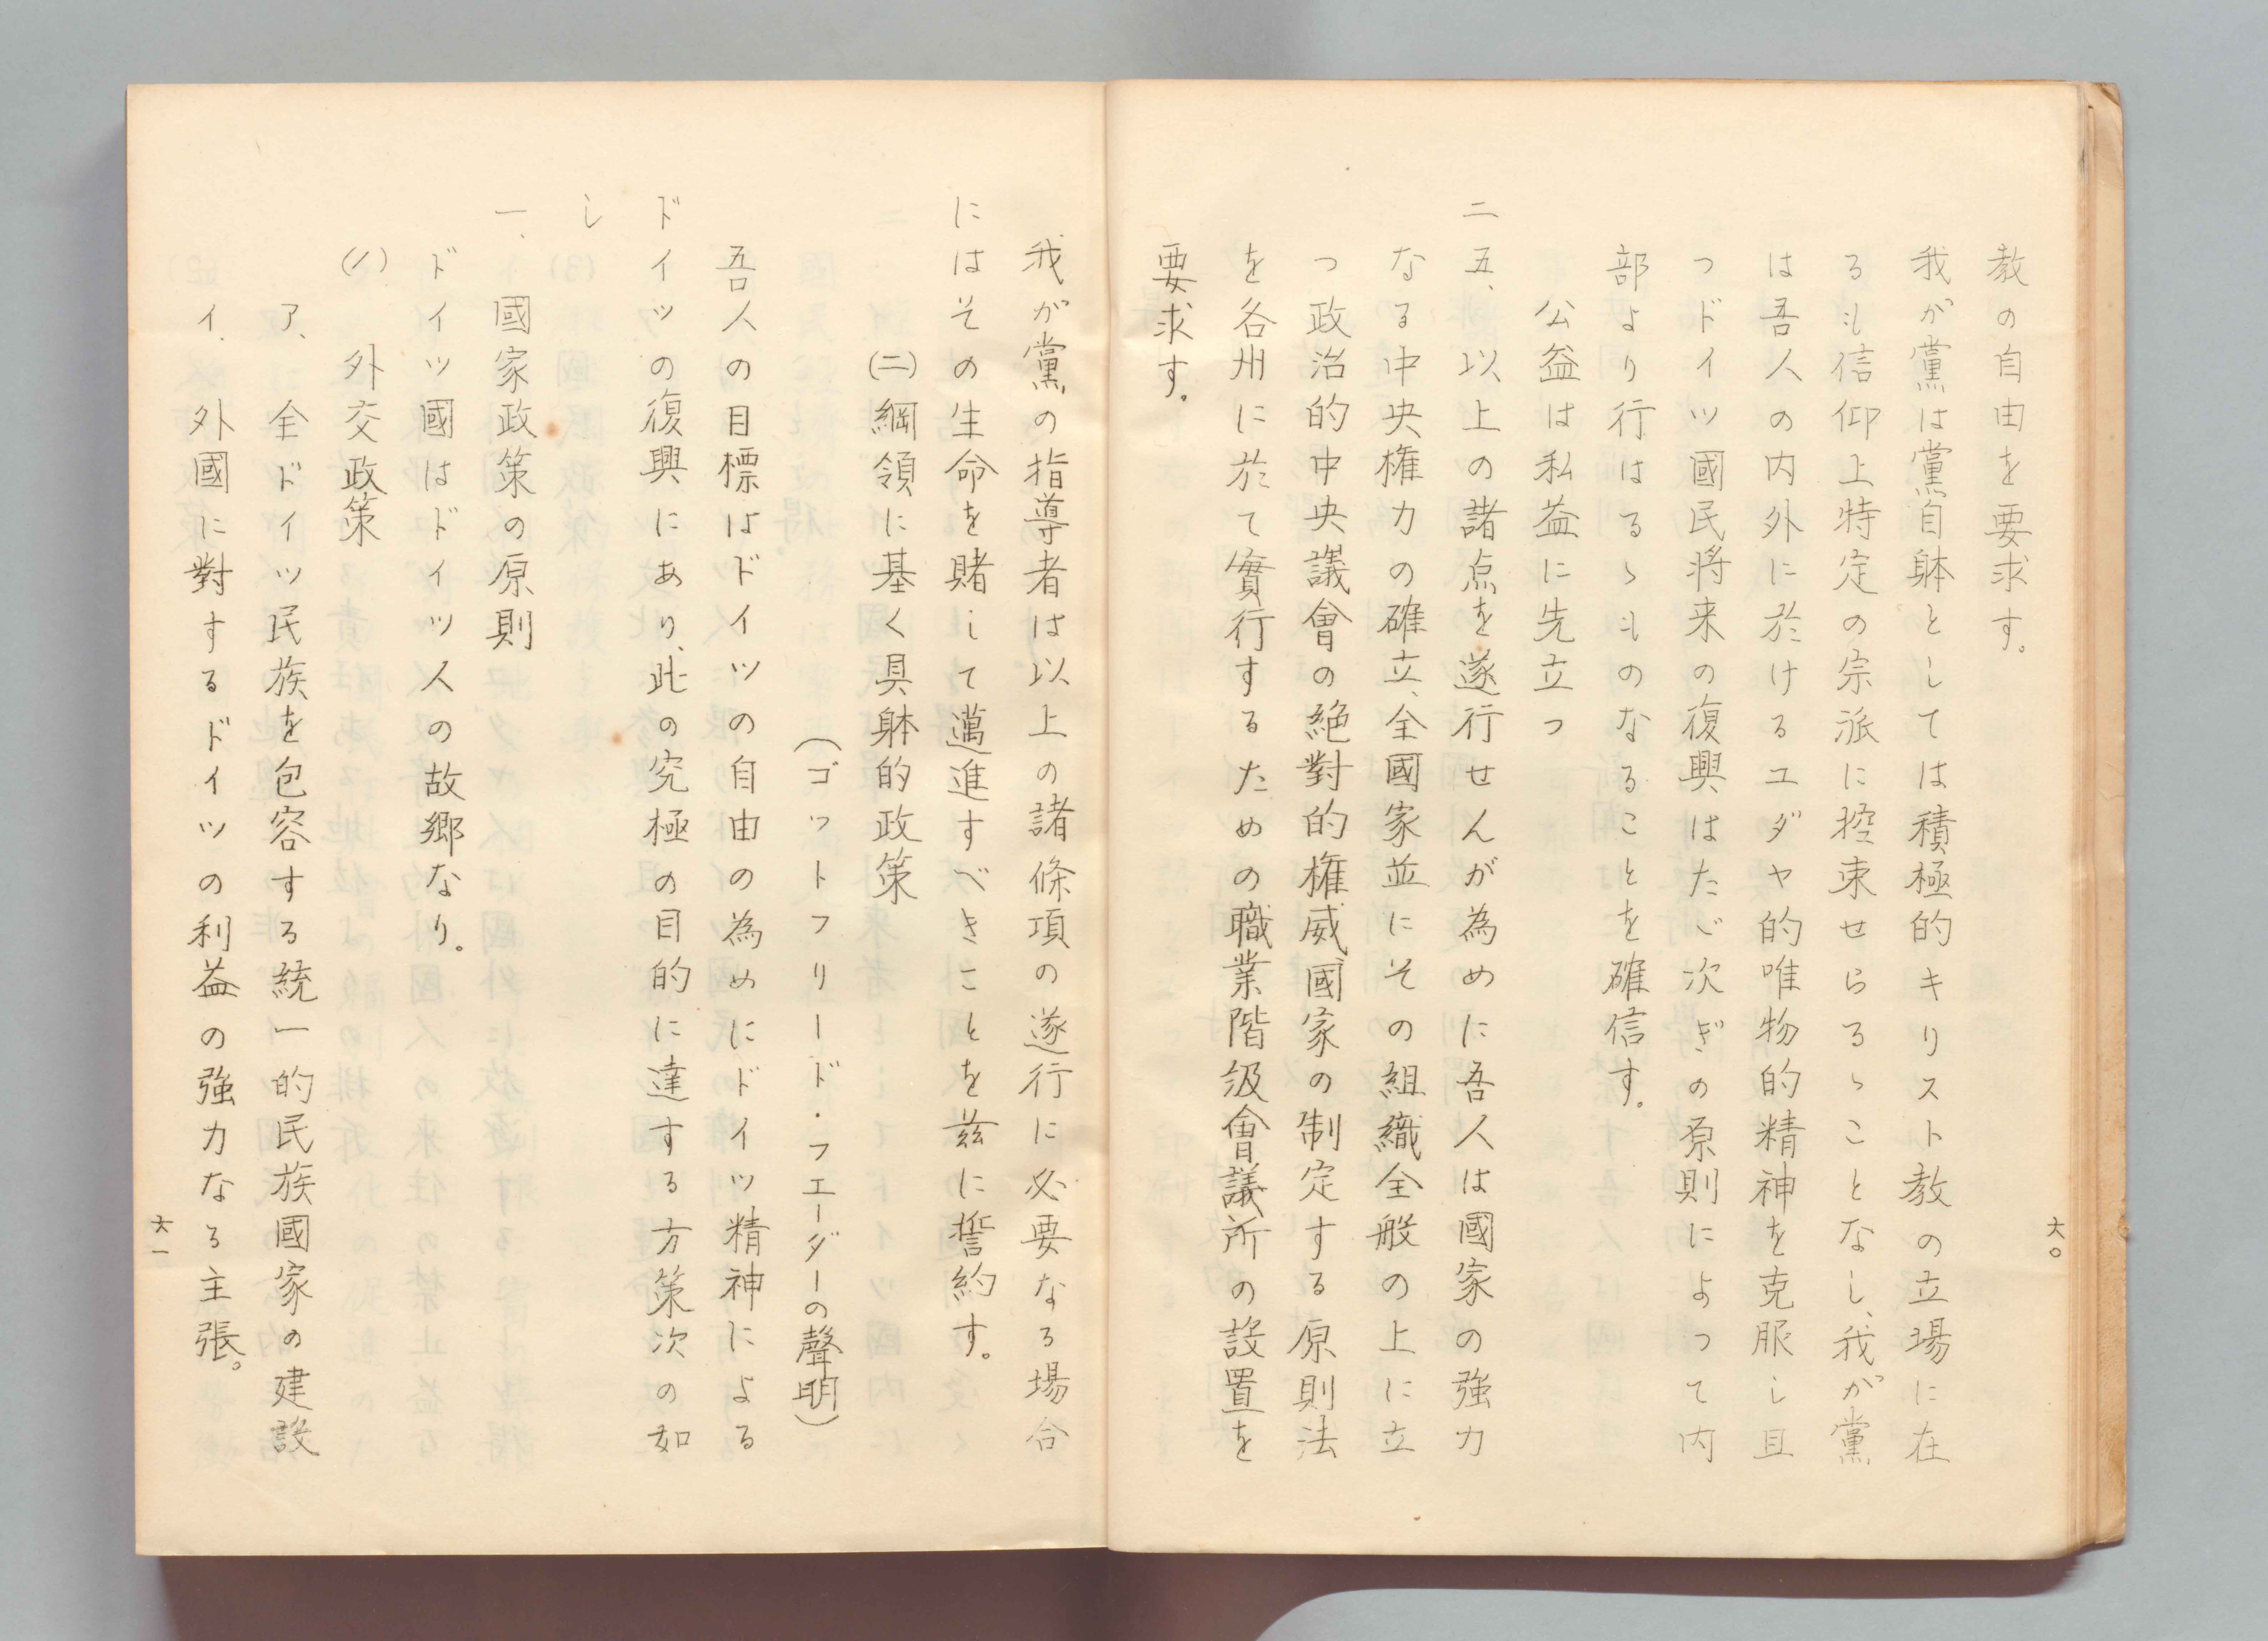 六〇
教の自由を要求す。
我が黨は黨自躰としては積極的キリスト教の立場に在
るも信仰上特定の宗派に控束せらるゝことなし、我が黨
は吾人の内外に於けるユダヤ的唯物的精神を克服し且
つドイツ國民将来の復興はたゞ次ぎの原則によつて内
部より行はるゝものなることを確信す。
公益は私益に先立つ
二五、以上の諸点を遂行せんが為めに吾人は國家の強力
なる中央権力の確立、全國家並にその組織全般の上に立
つ政治的中央議會の絶對的権威、國家の制定する原則法
を各州に於て實行するための職業階級會議所の設置を
要求す。
我が黨の指導者は以上の諸條項の遂行に必要なる場合
にはその生命を賭して邁進すべきことを茲に誓約す。
(二)綱領に基く具躰的政策
(ゴットフリード・フエーダーの聲明)
吾人の目標はドイツの自由の為めにドイツ精神による
ドイツの復興にあり、此の究極の目的に達する方策次の如
し
一、國家政策の原則
ドイツ國はドイツ人の故郷なり。
(1)外交政策
ア、全ドイツ民族を包容する統一的民族國家の建設
イ、外國に對するドイツの利益の強力なる主張。
六一